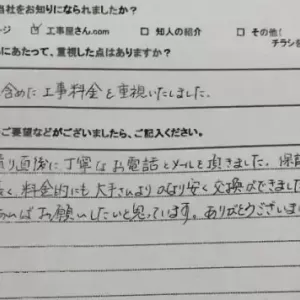 当社をお知りになられましたか?
ージ ☑ 工事屋さん.com □ 知人の紹介 □ その他(
チラシを
にあたって、重視した点はありますか?
含めた 工事料金を重視いたしました.
ご要望などがございましたら、ご記入ください。
り直後に 丁寧な お電話とメールを頂きました. 保証
く 料金的にも 大手さんより かなり安く 交換ができました
あればお願いしたいと思っています。ありがとうございま